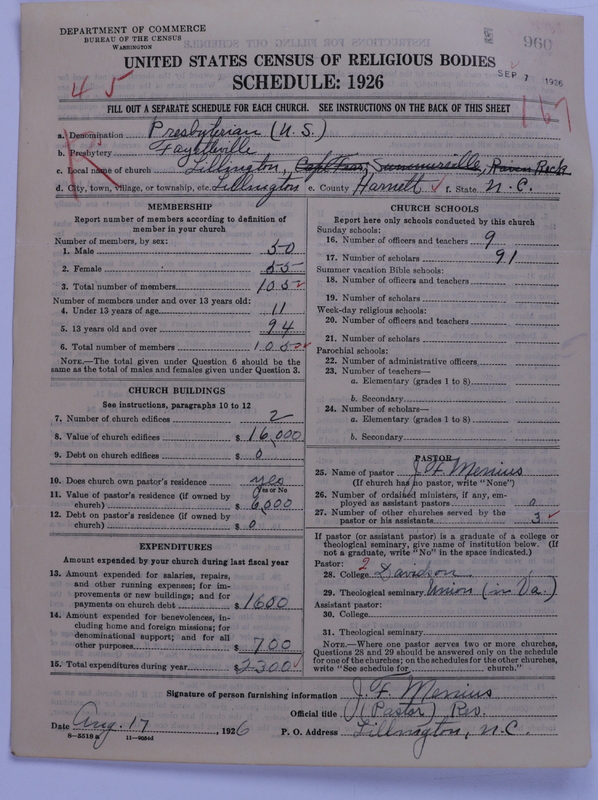 DEPARTMENT OF COMMERCE
BUREAU OF THE CENSUS
WASHINGTON
960
UNITED STATES CENSUS OF RELIGIOUS BODIES
SEP 7 1926
SCHEDULE: 1926
45
FILL OUT A SEPARATE SCHEDULE FOR EACH CHURCH. SEE INSTRUCTIONS ON THE BACK OF THIS SHEET
167
a. Denomination Presbyterian (U.S.)
b. Presbytery Fayetteville
c. Local name of church Lillington, Cape Fear, Summerville, Raven Rock
d. City, town, village, or township, etc. Lillington e. County Harnett f. State N.C.
MEMBERSHIP
Report number of members according to definition of
member in your church
Number of members, by sex:
1. Male 50
2. Female 55
3. Total number of members 105
Number of members under and over 13 years old:
4. Under 13 years of age 11
5. 13 years old and over 94
6. Total number of members 105
NOTE.—The total given under Question 6 should be the
same as the total of males and females given under Question 3.
CHURCH BUILDINGS
See instructions, paragraphs 10 to 12
7. Number of church edifices 2
8. Value of church edifices $ 16,000
9. Debt on church edifices $ 0
10. Does church own pastor's residence yes
Yes or No
11. Value of pastor's residence (if owned by
church) $ 6,000
12. Debt on pastor's residence (if owned by
church) $ 0
EXPENDITURES
Amount expended by your church during last fiscal year
13. Amount expended for salaries, repairs,
and other running expenses; for im-
provements or new buildings; and for
payments on church debt $ 1600
14. Amount expended for benevolences, in-
cluding home and foreign missions; for
denominational support; and for all
other purposes $ 700
15. Total expenditures during year $ 2300
CHURCH SCHOOLS
Report here only schools conducted by this church
Sunday schools:
16. Number of officers and teachers 9
17. Number of scholars 91
Summer vacation Bible schools:
18. Number of officers and teachers
19. Number of scholars
Week-day religious schools:
20. Number of officers and teachers
21. Number of scholars
Parochial schools:
22. Number of administrative officers
23. Number of teachers—
a. Elementary (grades 1 to 8)
b. Secondary
24. Number of scholars—
a. Elementary (grades 1 to 8)
b. Secondary
PASTOR
25. Name of pastor J F Menius
(If church has no pastor, write "None")
26. Number of ordained ministers, if any, em-
ployed as assistant pastors 0
27. Number of other churches served by the
pastor or his assistants 3
If pastor (or assistant pastor) is a graduate of a college or
theological seminary, give name of institution below. (If
not a graduate, write "No" in the space indicated.)
Pastor: 2
28. College Davidson
29. Theological seminary Union (in Va.)
Assistant pastor:
30. College
31. Theological seminary
NOTE.—Where one pastor serves two or more churches,
Questions 28 and 29 should be answered only on the schedule
for one of the churches; on the schedules for the other churches,
write "See schedule for church."
Signature of person furnishing information J. F. Menius
Official title (Pastor) Rev.
Date Aug. 17, 1926 P. O. Address Lillington, N.C.